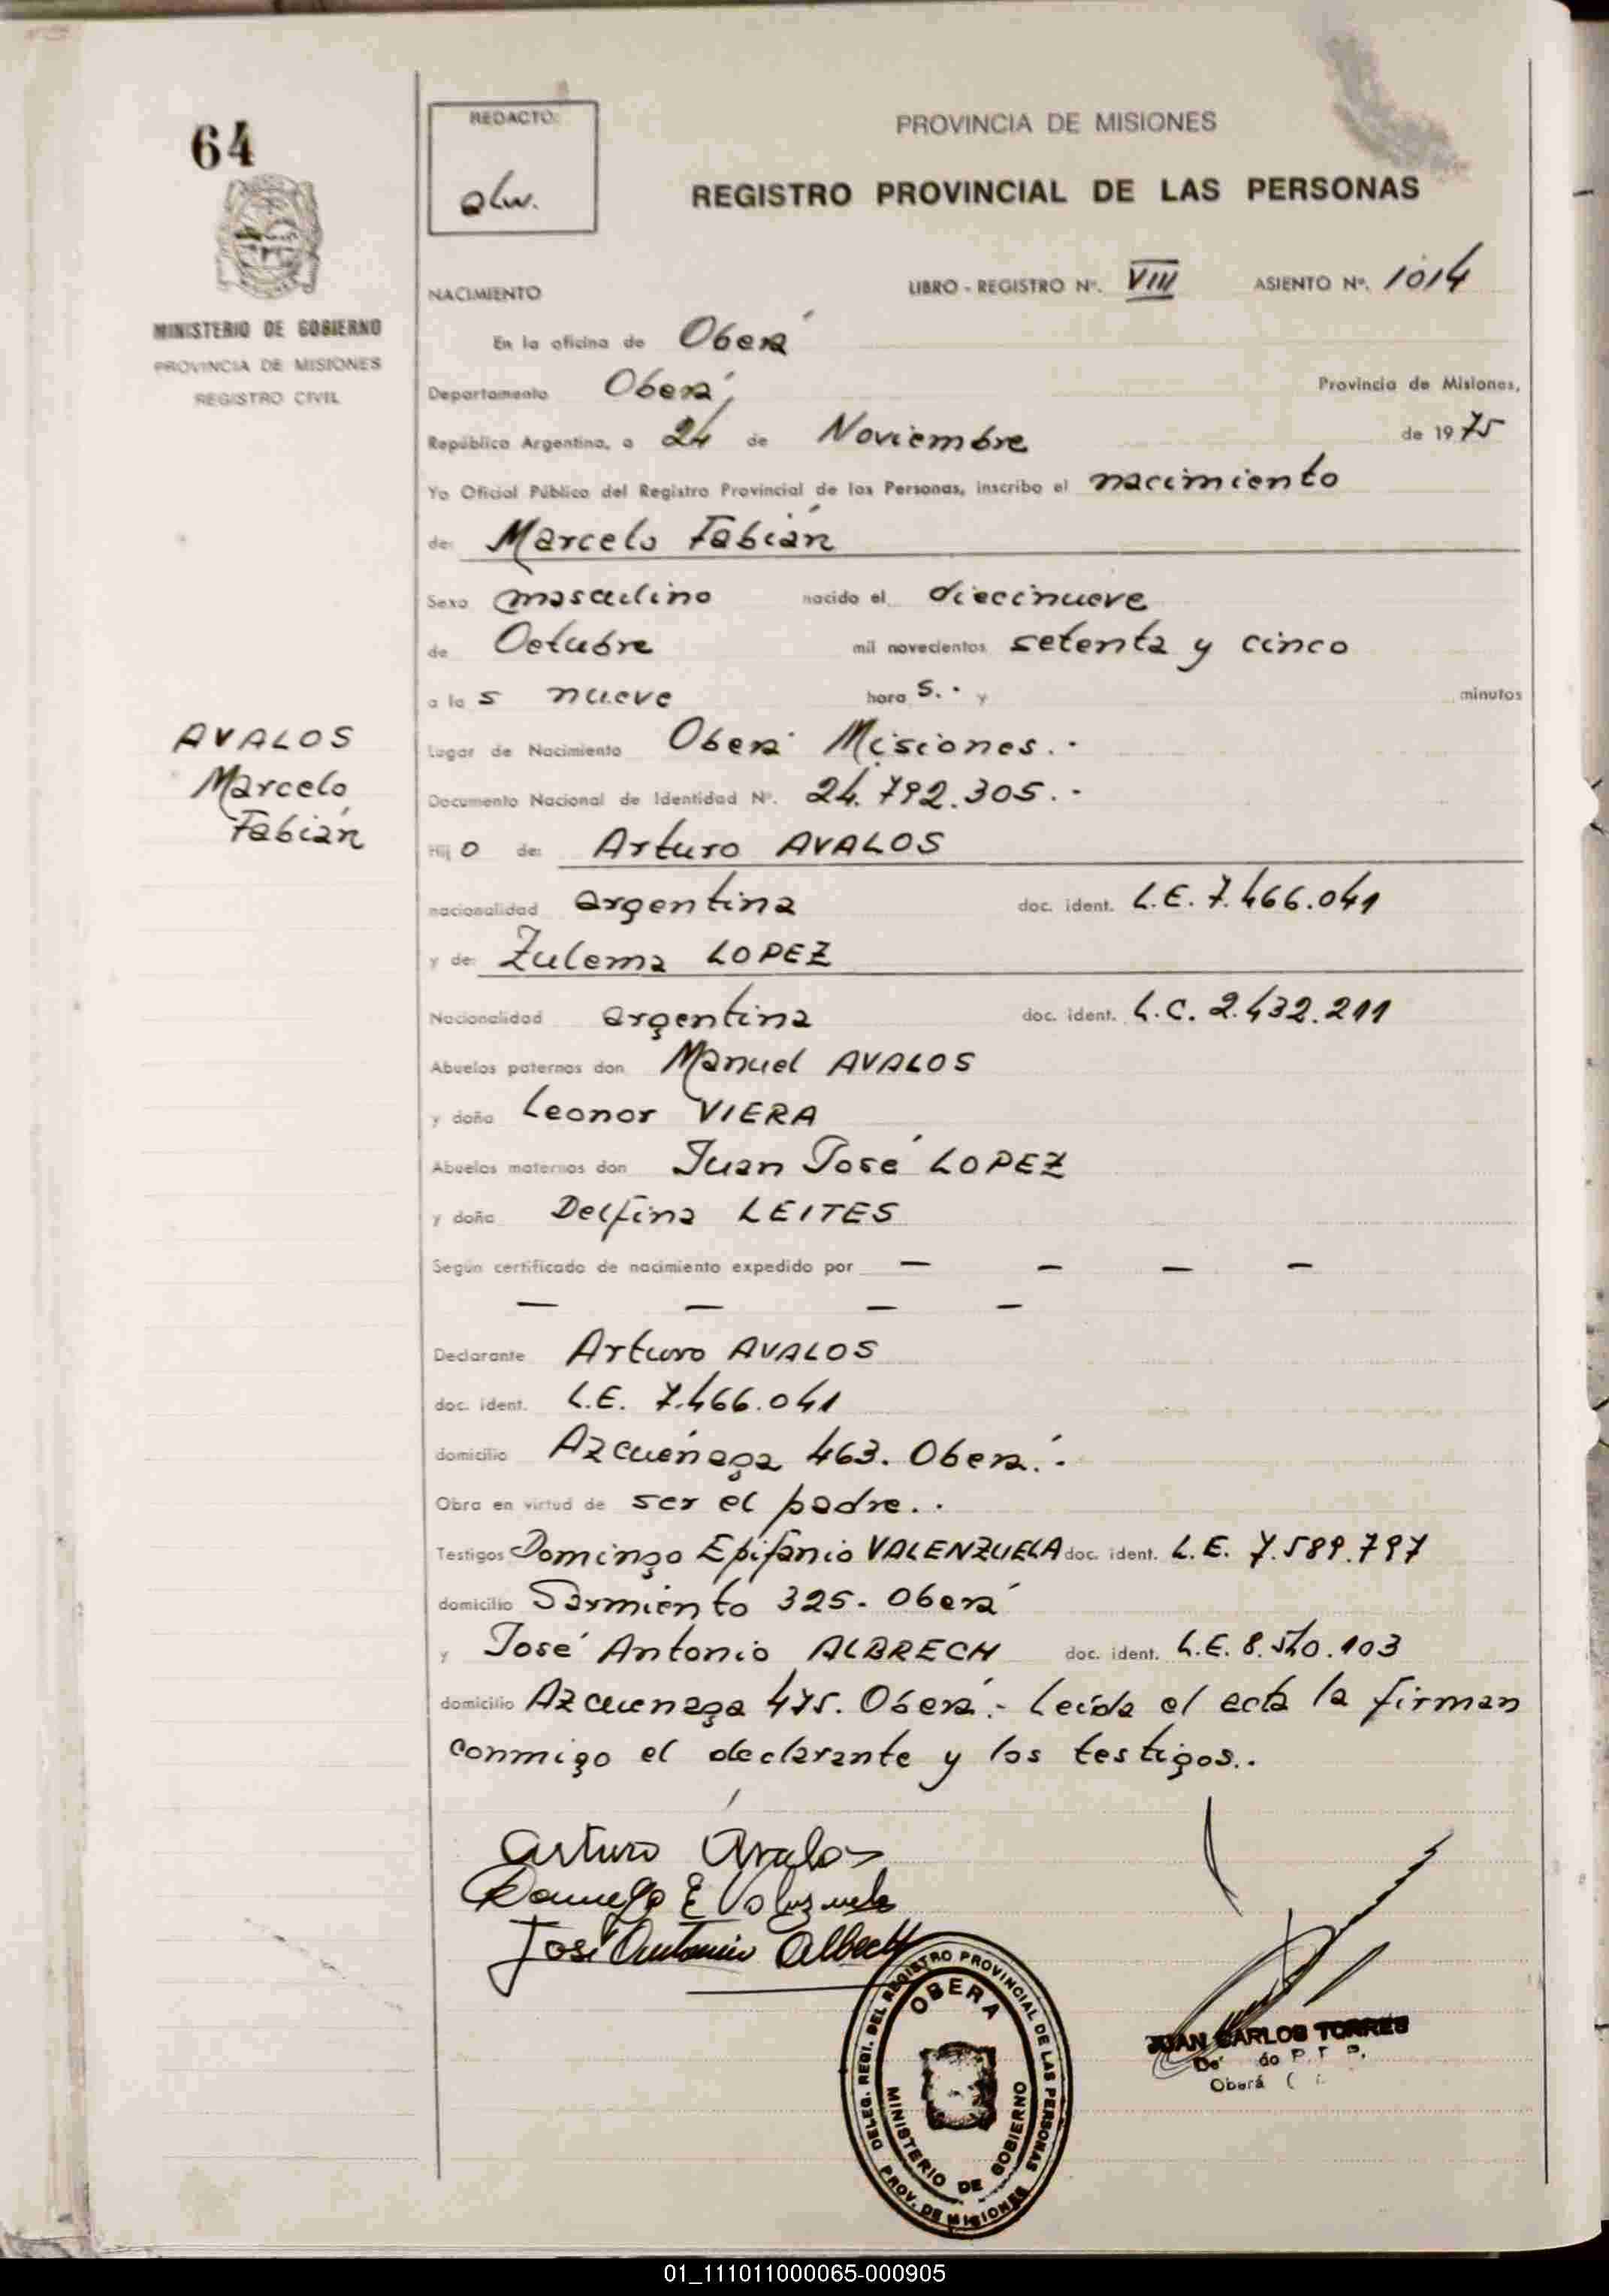 64
MINISTERIO DE GOBIERNO
PROVINCIA DE MISIONES
REGISTRO CIVIL
AVALOS
Marcelo
Fabián
REDACTO:
PROVINCIA DE MISIONES
REGISTRO PROVINCIAL DE LAS PERSONAS
NACIMIENTO LIBRO - REGISTRO Nº. VIII ASIENTO Nº. 1014
En la oficina de Oberá
Departamento Oberá, Provincia de Misiones,
República Argentina, a 24 de Noviembre de 1975
Yo Oficial Público del Registro Provincial de las Personas, inscribo el nacimiento
de: Marcelo Fabián
Sexo masculino nacido el diecinueve
de Octubre mil novecientos setenta y cinco
a las nueve horas.- y minutos
Lugar de Nacimiento Oberá Misiones.-
Documento Nacional de Identidad Nº. 24.792.305.-
Hijo de: Arturo AVALOS
nacionalidad argentina doc. ident. L.E. 7.466.041
y de: Zulema LOPEZ
Nacionalidad argentina doc. ident. L.C. 2.432.211
Abuelos paternos don Manuel AVALOS
y doña Leonor VIERA
Abuelos maternos don Juan José LOPEZ
y doña Delfina LEITES
Según certificado de nacimiento expedido por — — — —
— — — —
Declarante Arturo AVALOS
doc. ident. L.E. 7.466.041
domicilio Azcuénaga 463. Oberá.-
Obra en virtud de ser el padre..
Testigos Domingo Epifanio VALENZUELA doc. ident. L.E. 7.589.797
domicilio Sarmiento 325. Oberá
y José Antonio ALBRECH doc. ident. L.E. 8.540.103
domicilio Azcuenaga 475. Oberá.- Leída el acta la firman
conmigo el declarante y los testigos..
Arturo Avalos
Domingo E Valenzuela
José Antonio Albech
DELEG. REGI. DEL REGISTRO PROVINCIAL DE LAS PERSONAS
OBERA
MINISTERIO DE GOBIERNO
PROV. DE MISIONES
JUAN CARLOS TORRES
Oberá
01_111011000065-000905